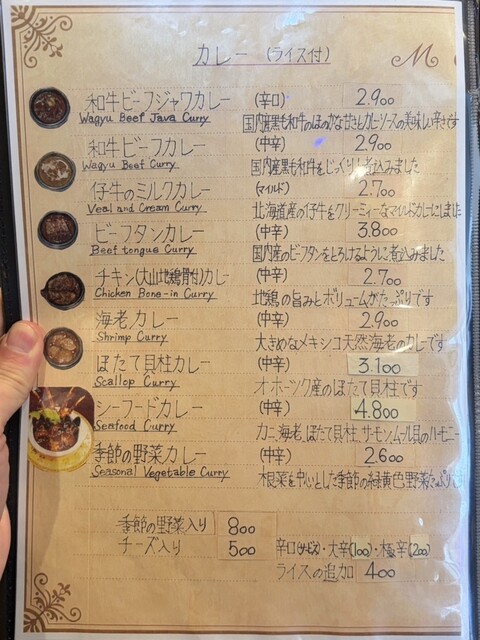 カレー (ライス付)
M
和牛ビーフジャワカレー (辛口) 2.900
Wagyu Beef Java Curry 国内産黒毛和牛のほのかな甘さとカレーソースの美味しい辛さです
和牛ビーフカレー (中辛) 2.900
Wagyu Beef Curry 国内産黒毛和牛をじっくり煮込みました
仔牛のミルクカレー (マイルド) 2.700
Veal and Cream Curry 北海道産の仔牛をクリーミィーなマイルドカレーにしました
ビーフタンカレー (中辛) 3.800
Beef tongue Curry 国内産のビーフタンをとろけるように煮込みました
チキン(大山地鶏骨付)カレー (中辛) 2.700
Chicken Bone-in Curry 地鶏の旨みとボリュームがたっぷりです
海老カレー (中辛) 2.900
Shrimp Curry 大きめなメキシコ天然海老のカレーです
ほたて貝柱カレー (中辛) 3.100
Scallop Curry オホーツク産のほたて貝柱です
シーフードカレー (中辛) 4.800
Seafood Curry カニ、海老、ほたて貝柱、サーモン、ムール貝のハーモニー
季節の野菜カレー (中辛) 2.600
Seasonal Vegetable Curry 根菜を中心とした季節の緑黄色野菜たっぷり
季節の野菜入り 800
チーズ入り 500 辛口(サービス)・大辛(100)・極辛(200)
ライスの追加 400